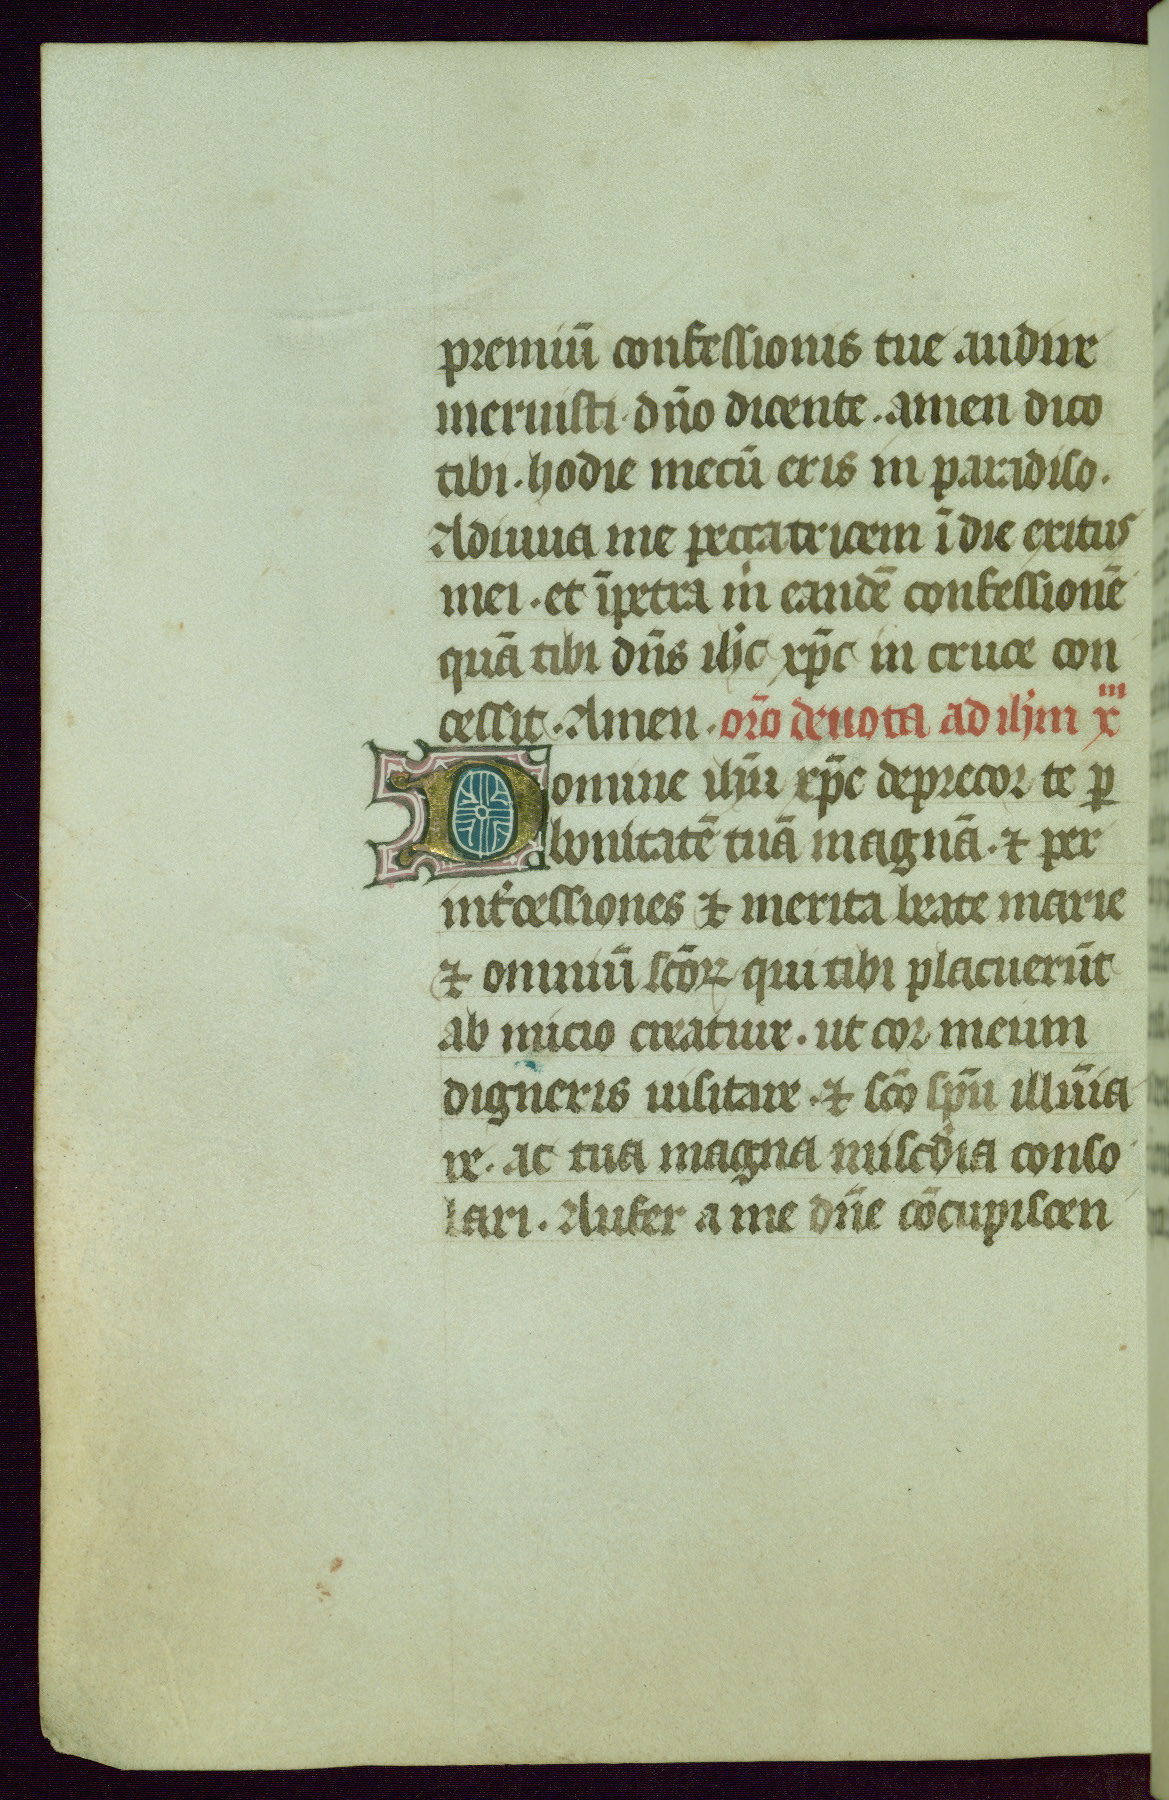 premiū confessionis tue audire
meruisti. dn̄o dicente. amen dico
tibi. hodie mecū eris in paradiso.
Adiuua me peccatricem ī die exitus
mei. et īpetra m̍ eandē confessionē
quā tibi dn̄s ih̄c xp̄c in cruce con
cessit. Amen. or̄o deuota ad ih̄m xᵐ
Domine ih̄u xp̄c deprecor te ꝑ
bonitatē tuā magnā. ⁊ per
int͛cessiones ⁊ merita beate marie
⁊ omniū sc̄oꝝ qui tibi placuerūt
ab inicio creature. ut cor meum
digneris uisitare. ⁊ sc̄o sp̄u illūīa
re. ac tua magna mīsc̄dia conso
lari. Aufer a me dn̄e cōcupiscen